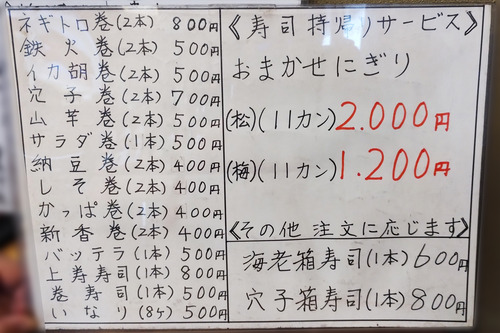 ネギトロ巻(2本) 800円
鉄火巻(2本) 500円
イカ胡巻(2本) 500円
穴子巻(2本) 700円
山芋巻(2本) 500円
サラダ巻(1本) 500円
納豆巻(2本) 400円
しそ巻(2本) 400円
かっぱ巻(2本) 400円
新香巻(2本) 400円
バッテラ(1本) 500円
上寿寿司(1本) 800円
巻寿司(1本) 500円
いなり(8ヶ) 500円
《寿司持帰りサービス》
おまかせにぎり
(松)(11カン) 2.000円
(梅)(11カン) 1.200円
《その他 注文に応じます》
海老箱寿司(1本) 600円
穴子箱寿司(1本) 800円